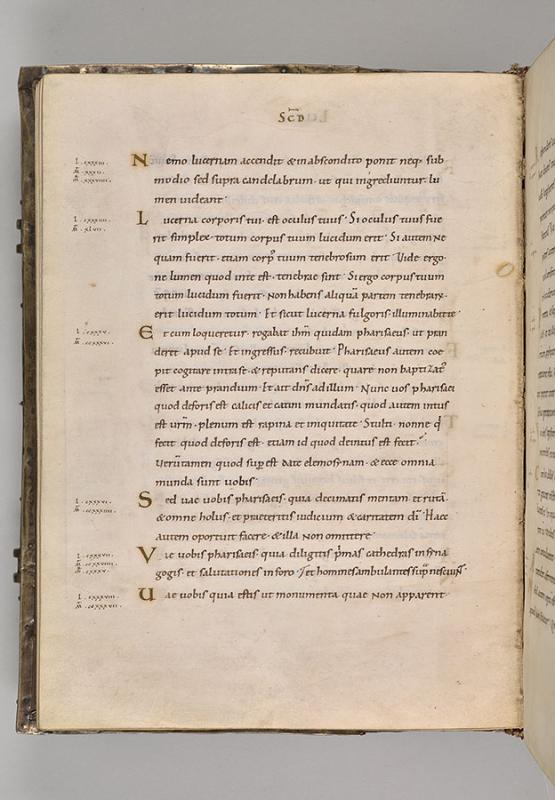 SCD
Nemo lucernam accendit & in abscondito ponit neq; sub
modio sed supra candelabrum · ut qui ingrediuntur lu
men uideant ·
Lucerna corporis tui · est oculus tuus · Si oculus tuus fue
rit simplex · totum corpus tuum lucidum erit · Si autem ne
quam fuerit · etiam corp' tuum tenebrosum erit · Uide ergo
ne lumen quod in te est · tenebrae sint · Si ergo corpus tuum
totum lucidum fuerit · Non habens aliquā partem tenebrarū
erit lucidum totum · Et sicut lucerna fulgoris illuminabit te ·
Et cum loqueretur · rogabat ihm quidam pharisaeus · ut pran
deret apud se · Et ingressus · recubuit · Pharisaeus autem coe
pit cogitare intra se · & reputans dicere · quare non baptizat'
esset ante prandium · Et ait dns ad illum · Nunc uos pharisaei
quod deforis est calicis et catini mundatis · quod autem intus
est urm · plenum est rapina et iniquitate · Stulti · nonne q
fecit quod deforis est · etiam id quod deintus est fecit ·
Verūtamen quod sup est date elemosynam · & ecce omnia
munda sunt uobis ·
Sed uae uobis pharisaeis · quia decimatis mentam et rutā ·
& omne holus · et praeteritis iudicium & caritatem di · Haec
autem oportuit facere · & illa non omittere ·
Vae uobis pharisaeis quia diligitis pmas cathedras in syna
gogis · et salutationes in foro · et homines ambulantes sup nesciunt
Uae uobis quia estis ut monumenta quae non apparent ·